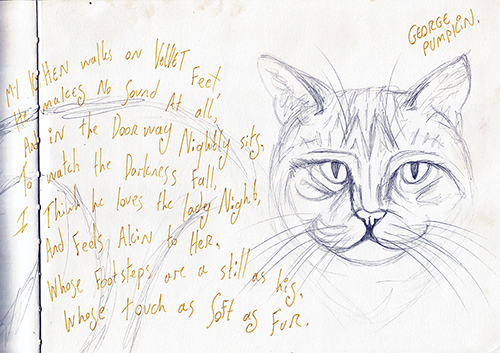 My KitHEN walks on VelVET Feet,
He makes No Sound At all,
And in the Doorway Nightly sits,
To watch the Darkness Fall,
I Think he loves the lady Night,
And Feels Akin to Her,
Whose Footsteps are a still as his,
Whose touch as Soft as Fur.
GEORGE
PUMPKIN.